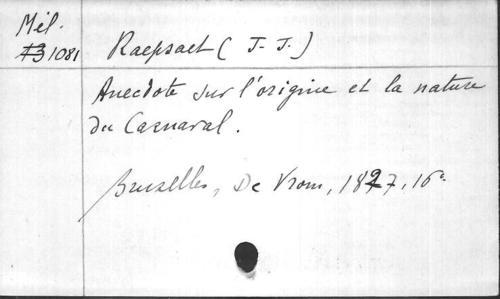 Mél.
Raepsaet (J-J.)
1081
Anecdote sur l'origine et la nature
du Carnaval.
Bruxelles, De Vrom, 1827, 16°